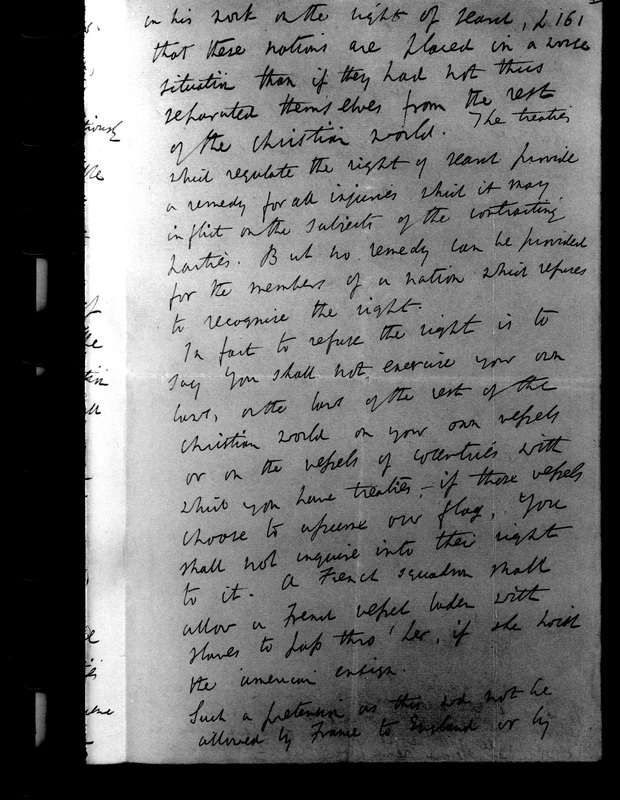 in his work on the right of search, p 161
that these nations are placed in a worse
situation than if they had not thus
separated themselves from the rest
of the christian world. The treaties
which regulate the right of search provide
a remedy for all injuries which it may
inflict on the subjects of the contracting
parties. But no remedy can be provided
for the members of a nation which refuses
to recognise the right.
In fact to refuse the right is to
say You shall not exercise your own
laws, or the laws of the rest of the
christian world on your own vessels
or on the vessels of countries with
which you have treaties, – if those vessels
choose to assume our flag. You
shall not inquire into their right
to it. A French squadron shall
allow a French vessel laden with
slaves to pass thro' her, if she hoist
the american ensign.
Such a pretension as this wd not be
allowed by France to England or by